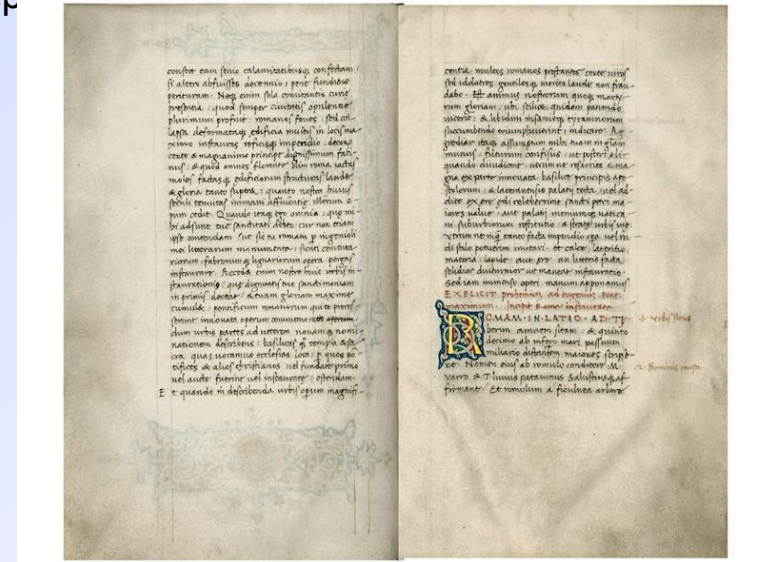 p
constat eam seuie calamitatibusq confectam
si altero abfuisses decennio : pene funditus
perituram. Neq enim sola comitantis curie
presentia : quod semper ciuitatis opulentie
plurimum profuit : romanos foues : sed col
lapsa deformataq edificia multis in locis ma
ximo instauras reficisq impendio : decora
certe & magnanimo principe dignissimum faci
nus : & quod omnes florentis olim roma iactas
moles factasq edificiorum structuras laude
& gloria tanto superat : quanto nostri huius
seculi tenuitas immani affluentie illorum
rum cedit. Quando itaq ego omnia : que mi
hi adsunt tue sanctitati debeo : cur non etiam
ipse contendam : ut sic tu romam p ingenioli
mei litterarum monumenta : sicuti cementa
riorum : fabrorumq lignariorum opera pergas
instaurare. Accedit enim nostre huic urbis in
staurationi : que dignitatem tue sanctimoniam
in primis deceat : & tuam gloriam maxime
cumulet : pontificum romanorum quite preces
serunt innouata operum
dum urbis partes ad ueterem nouamq nomi
nationem describens : basilicas & templa & sa
cra. que uocamus ecclesias loca : p quos po
tifices & alios christianos uel fundata primo
uel aucta fuerint uel instaurata : ostendam.
E t quando in describenda urbis opum magnifi
centia multos romanos prestantes certe uiros
sed idolatras gentiles merita laude non frau
dabo. Est animus nostrorum quoq marty
rum gloriam : ubi scilicet quidam patiendo
uicerit : & libidini insanieq tyrannorum
succumbendo triumphauerint : indicare. Ag
grediar itaq assumptum mihi tuam in gloriam
munus : futurum confisus : ut posteri ali
quando diiudicent : utrum ne refarcita & ma
gna ex parte innouata basilice principis apo
stolorum : & lateranensis palatij tecta : uel
ere edi celeberrime sancti petri ma
iores ualue : aut palatij menium uatica
ni suburbiorum restitutio : & strate urbis uie
utrum ne inq tanto facta impendio ope uel
di stilo potuerim imitari : & calce latericio
materia lapide : aut ere an litteris facta
solidior diuturnior ue maneat instauratio
Sed iam immenso operi manum apponamus
EXPLICIT prohemium ad eugenium Pont.
maximum. Incipit Roma instaurata
ROMAM·IN·LATIO·AD·TY
berim amnem sitam : & quinto
decimo ab infero mari passuum
miliario distantem maiores scripse
re. Nomen eius ab romulo conditore M.
Varro & T liuius patauinus Salustiusq af
firmant. Et romulum a ficulnea arbore
urbis situs
Nominis causa